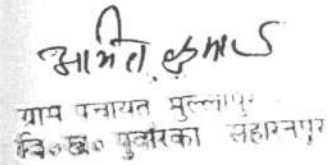 अमित कुमार
ग्राम पंचायत मुल्लापुर
वि०ख० पुवांरका सहारनपुर